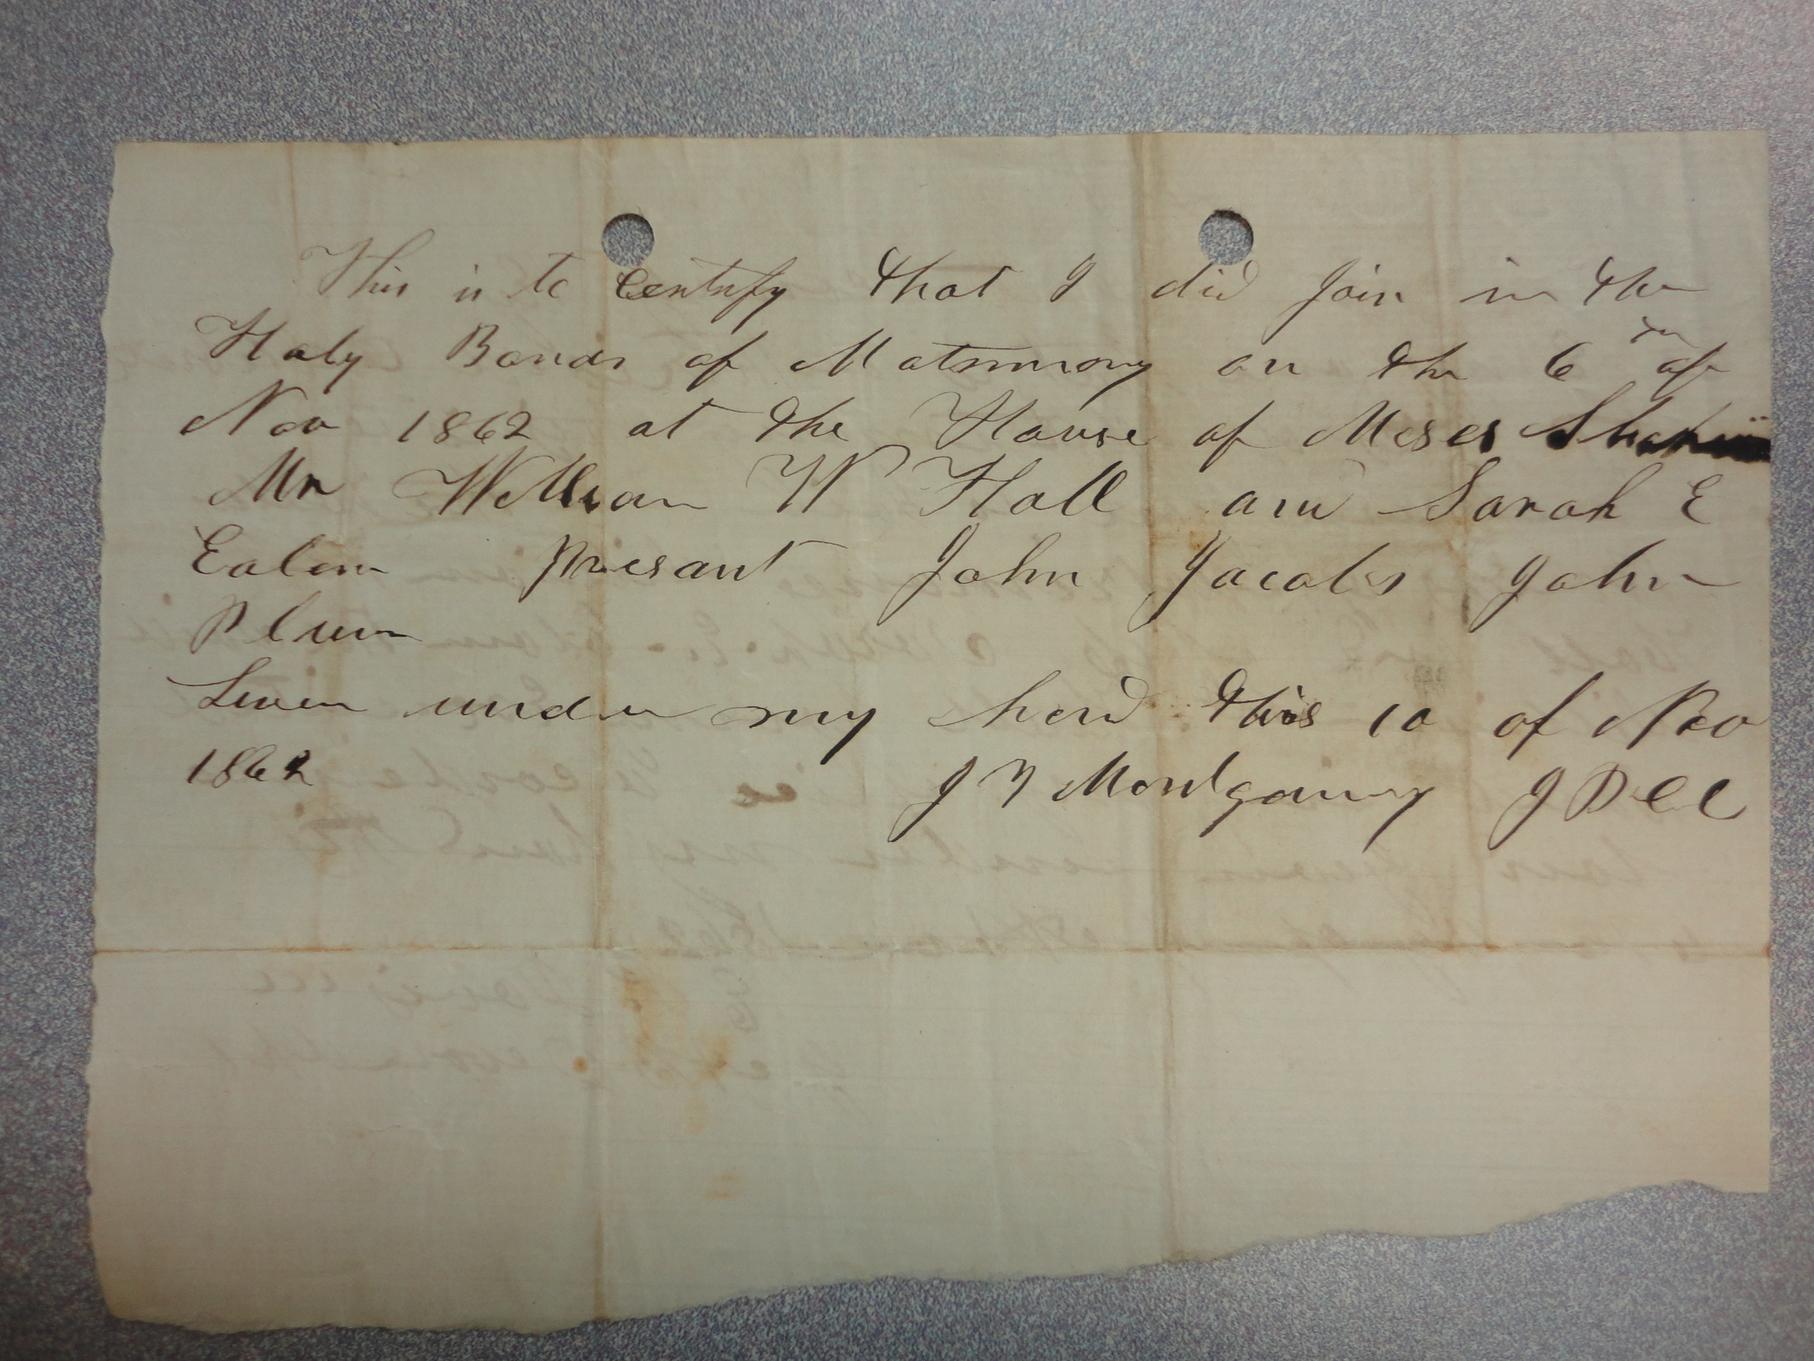 This is to Certify that I did Join in the
Holy Bonds of Matrimony on the 6th of
Nov 1862 at the House of Moses
Mr William W Hall and Sarah E
Ealom presant John Jacobs John
Plum
under my hand this 10 of Nov
1862 J Montgomery J P C C